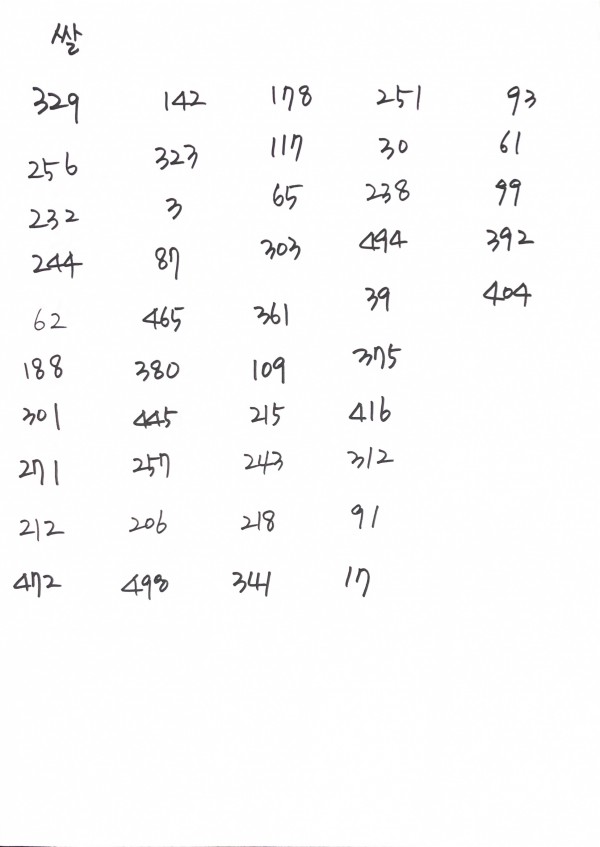 쌀
329 142 178 251 93
256 323 117 30 61
232 3 65 238 99
244 87 303 494 392
62 465 361 39 404
188 380 109 375
301 445 215 416
271 257 243 312
212 206 218 91
472 498 341 17